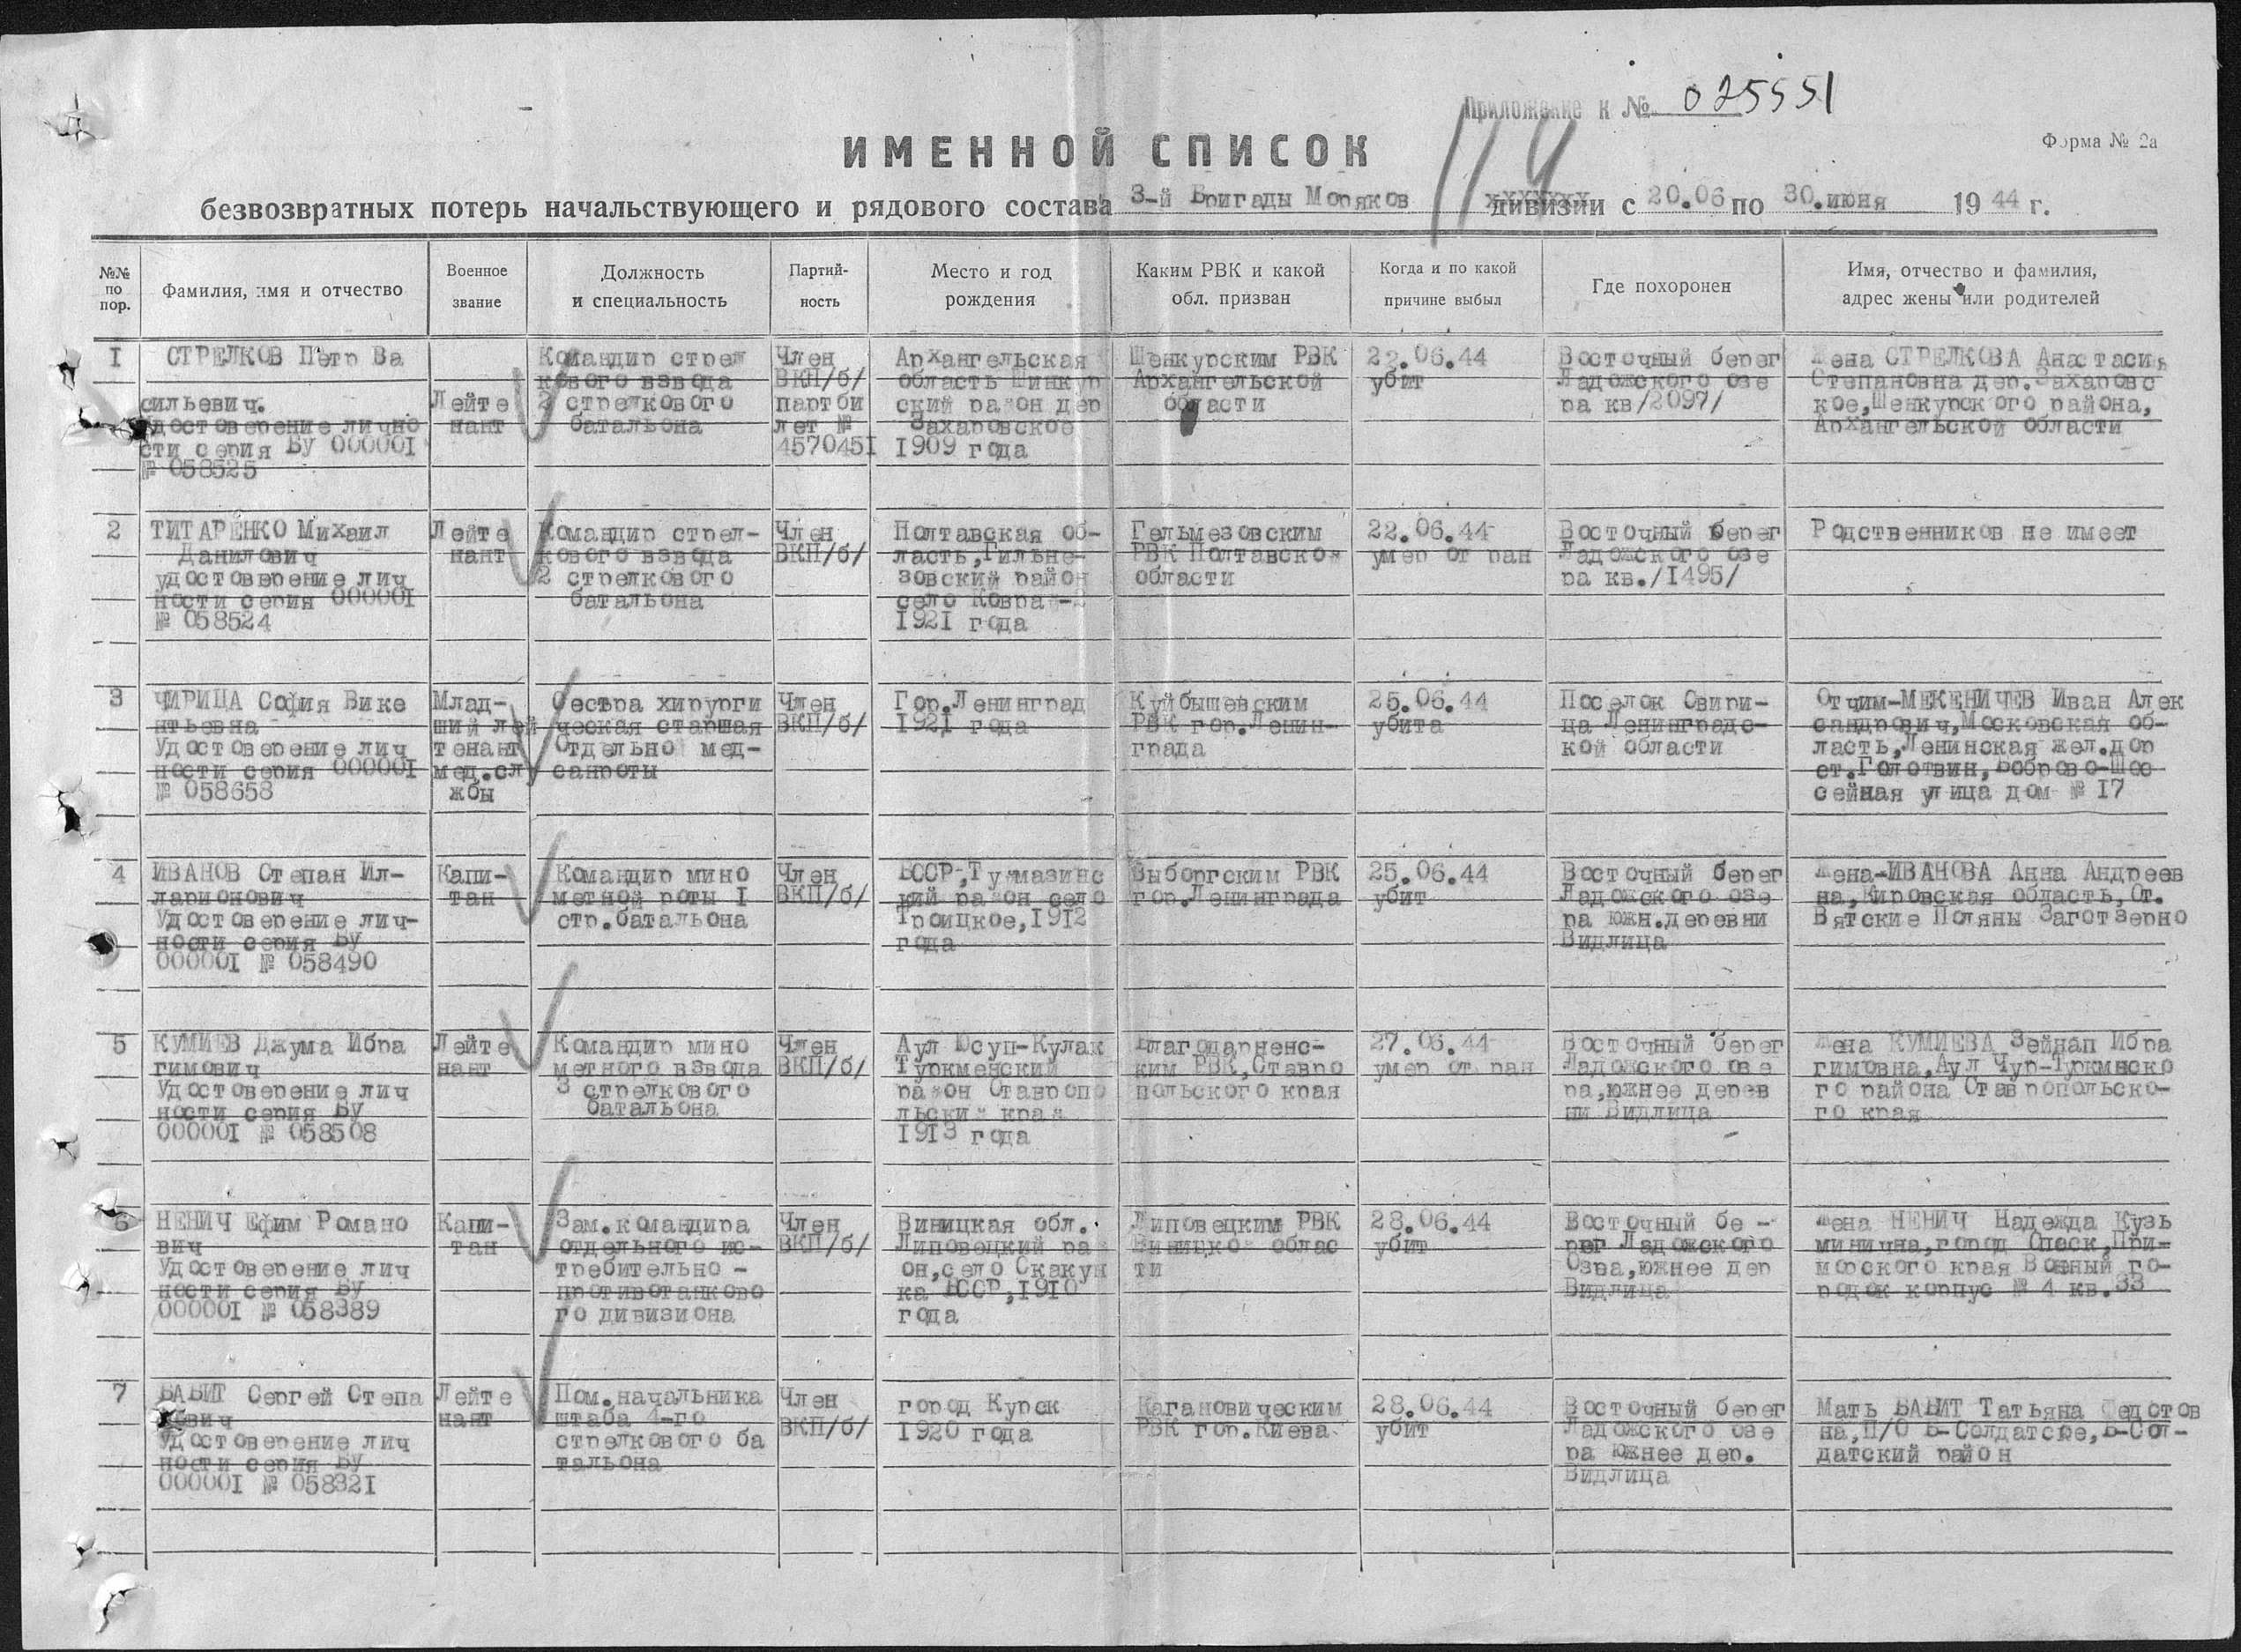 Приложение к № 025551
114
ИМЕННОЙ СПИСОК
Форма № 2а
безвозвратных потерь начальствующего и рядового состава 3-й Бригады Моряков дивизии с 20.06 по 30.июня 1944 г.
№№ по пор.
Фамилия, имя и отчество
Военное звание
Должность и специальность
Партий-ность
Место и год рождения
Каким РВК и какой обл. призван
Когда и по какой причине выбыл
Где похоронен
Имя, отчество и фамилия, адрес жены или родителей
I
СТРЕЛКОВ Петр Ва
сильевич.
Удостоверение лично
сти серия ВУ 00000I
№ 058525
Лейте
нант
Командир стрел
кового взвода
2 стрелкового
батальона
Член
ВКП/б/
партби
лет №
457045I
Архангельская
область Шинкур
ский район дер
Захаровское
I909 года
Шенкурским РВК
Архангельской
области
22.06.44
убит
Восточный берег
Ладожского озе
ра кв/2097/
Жена СТРЕЛКОВА Анастасия
Степановна дер.Захаровс
кое,Шенкурского района,
Архангельской области
2
ТИТАРЕНКО Михаил
Данилович
удостоверение лич
ности серия 00000I
№ 058524
Лейте
нант
Командир стрел-
кового взвода
2 стрелкового
батальона
Член
ВКП/б/
Полтавская об-
ласть,Гильме-
зовский район
село Коврай-2
I92I года
Гельмезовским
РВК Полтавской
области
22.06.44
умер от ран
Восточный берег
Ладожского озе
ра кв./I495/
Родственников не имеет
3
ЧИРИЦА София Вике
нтьевна
Удостоверение лич
ности серия 00000I
№ 058658
Млад-
ший лей
тенант
мед.слу
жбы
Сестра хирурги
ческая старшая
Отдельной мед-
санроты
Член
ВКП/б/
Гор.Ленинград
I92I года
Куйбышевским
РВК гор.Ленин-
града
25.06.44
убита
Поселок Свири-
ца Ленинградс-
кой области
Отчим-МЕКЕНИЧЕВ Иван Алек
сандрович,Московская об-
ласть,Ленинская жел.дор
ст.Голотвин,Боброво-Шос
сейная улица дом № I7
4
ИВАНОВ Степан Ил-
ларионович
Удостоверение лич-
ности серия ВУ
00000I № 058490
Капи-
тан
Командир мино
метной роты I
стр.батальона
Член
ВКП/б/
БССР,Туймазинс
кий район село
Троицкое,I9I2
года
Выборгским РВК
гор.Ленинграда
25.06.44
убит
Восточный берег
Ладожского озе
ра южн.деревни
Видлица
Жена-ИВАНОВА Анна Андреев
на,Кировская область,Ст.
Вятские Поляны Заготзерно
5
КУМИЕВ Джума Ибра
гимович
Удостоверение лич
ности серия ВУ
00000I № 058508
Лейте
нант
Командир мино
метного взвода
3 стрелкового
батальона
Член
ВКП/б/
Аул Юсуп-Кулак
Туркменский
район Ставропо
льский край
I9I3 года
Благодарненс-
ким РВК,Ставро
польского края
27.06.44
умер от ран
Восточный берег
Ладожского озе
ра,южнее дерев
ни Видлица
Жена КУМИЕВА Зейнап Ибра
гимовна,Аул Чур-Туркменско
го района Ставропольско-
го края
6
НЕНИЧ Ефим Романо
вич
Удостоверение лич
ности серия ВУ
00000I № 058389
Капи-
тан
Зам.командира
отдельного ис-
требительно -
противотанково
го дивизиона
Член
ВКП/б/
Виницкая обл.
Липовецкий ра
он,село Скакун
ка УССР,I9I0
года
Липовецким РВК
Виницкой облас
ти
28.06.44
убит
Восточный бе -
рег Ладожского
Озра,южнее дер
Видлица
Жена НЕНИЧ Надежда Кузь
минична,город Спасск,При-
морского края Военный го-
родок корпус № 4 кв.33
7
БАБИТ Сергей Степа
нович
Удостоверение лич
ности серия ВУ
00000I № 05832I
Лейте
нант
Пом.начальника
штаба 4-го
стрелкового ба
тальона
Член
ВКП/б/
город Курск
I920 года
Кагановическим
РВК гор.Киева
28.06.44
убит
Восточный берег
Ладожского озе
ра южнее дер.
Видлица
Мать БАБИТ Татьяна Федотов
на,П/О Б-Солдатское,Б-Сол-
датский район